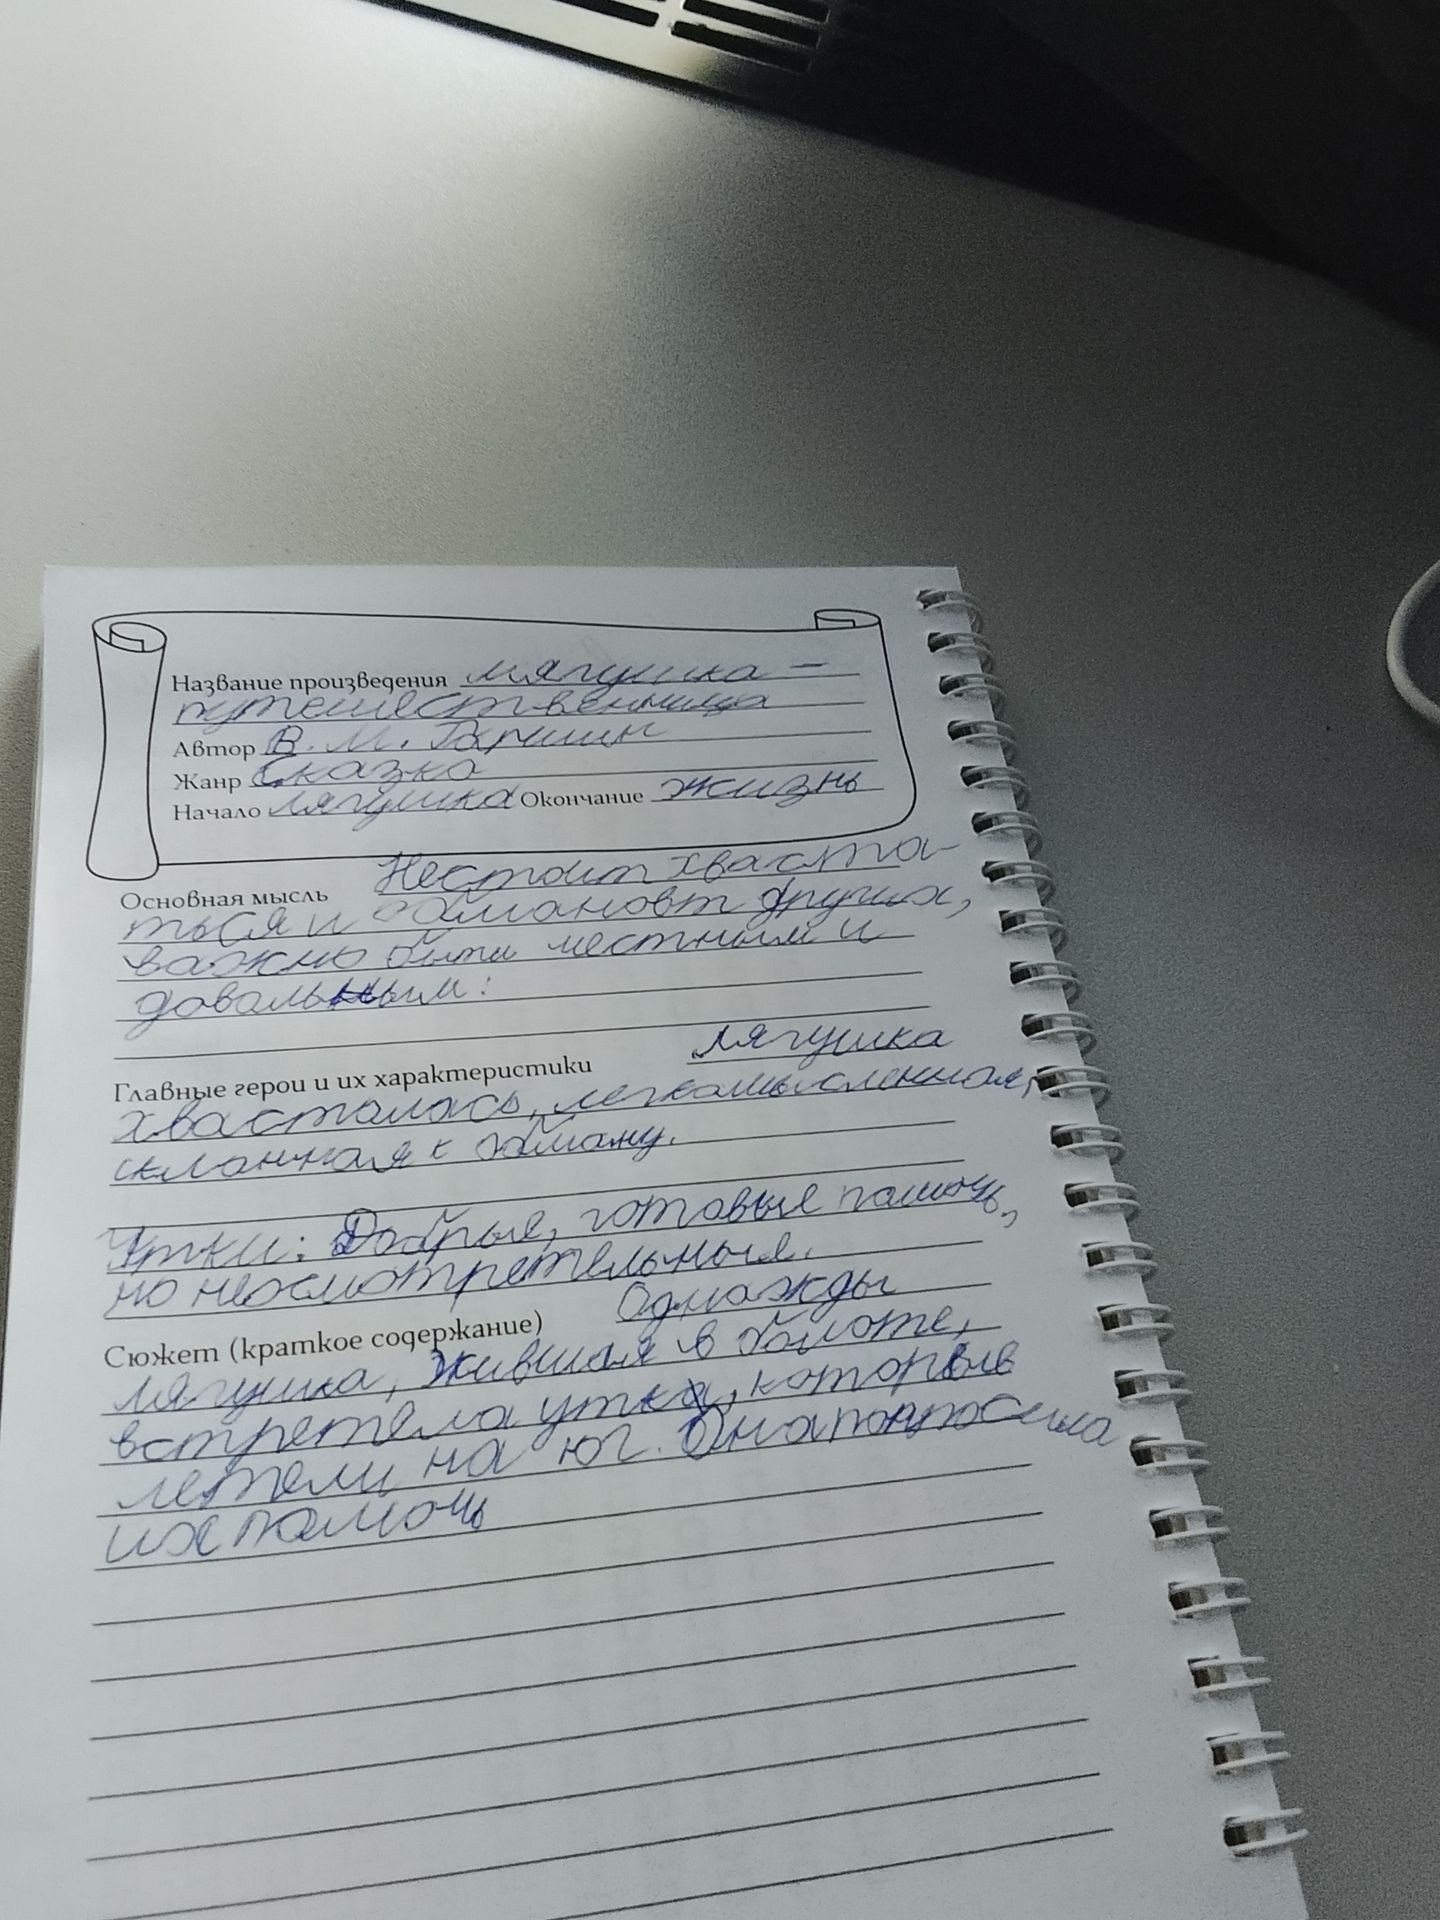 Название произведения лягушка -
путешественница
Автор В. М. Гаршин
Жанр Сказка
Начало лягушка Окончание жизнь
Основная мысль Нестоит хваста-
ться и обмановт других,
важно быть честным и
довольным:
Главные герои и их характеристики лягушка
хвасталась, легкомысленная,
склонная к обману.
Утки: Добрые, готовые помочь,
но неосмотрительные.
Сюжет (краткое содержание) Однажды
лягушка, жившая в болоте,
встретела утка, которые
летели на юг. Она попросила
их помочь